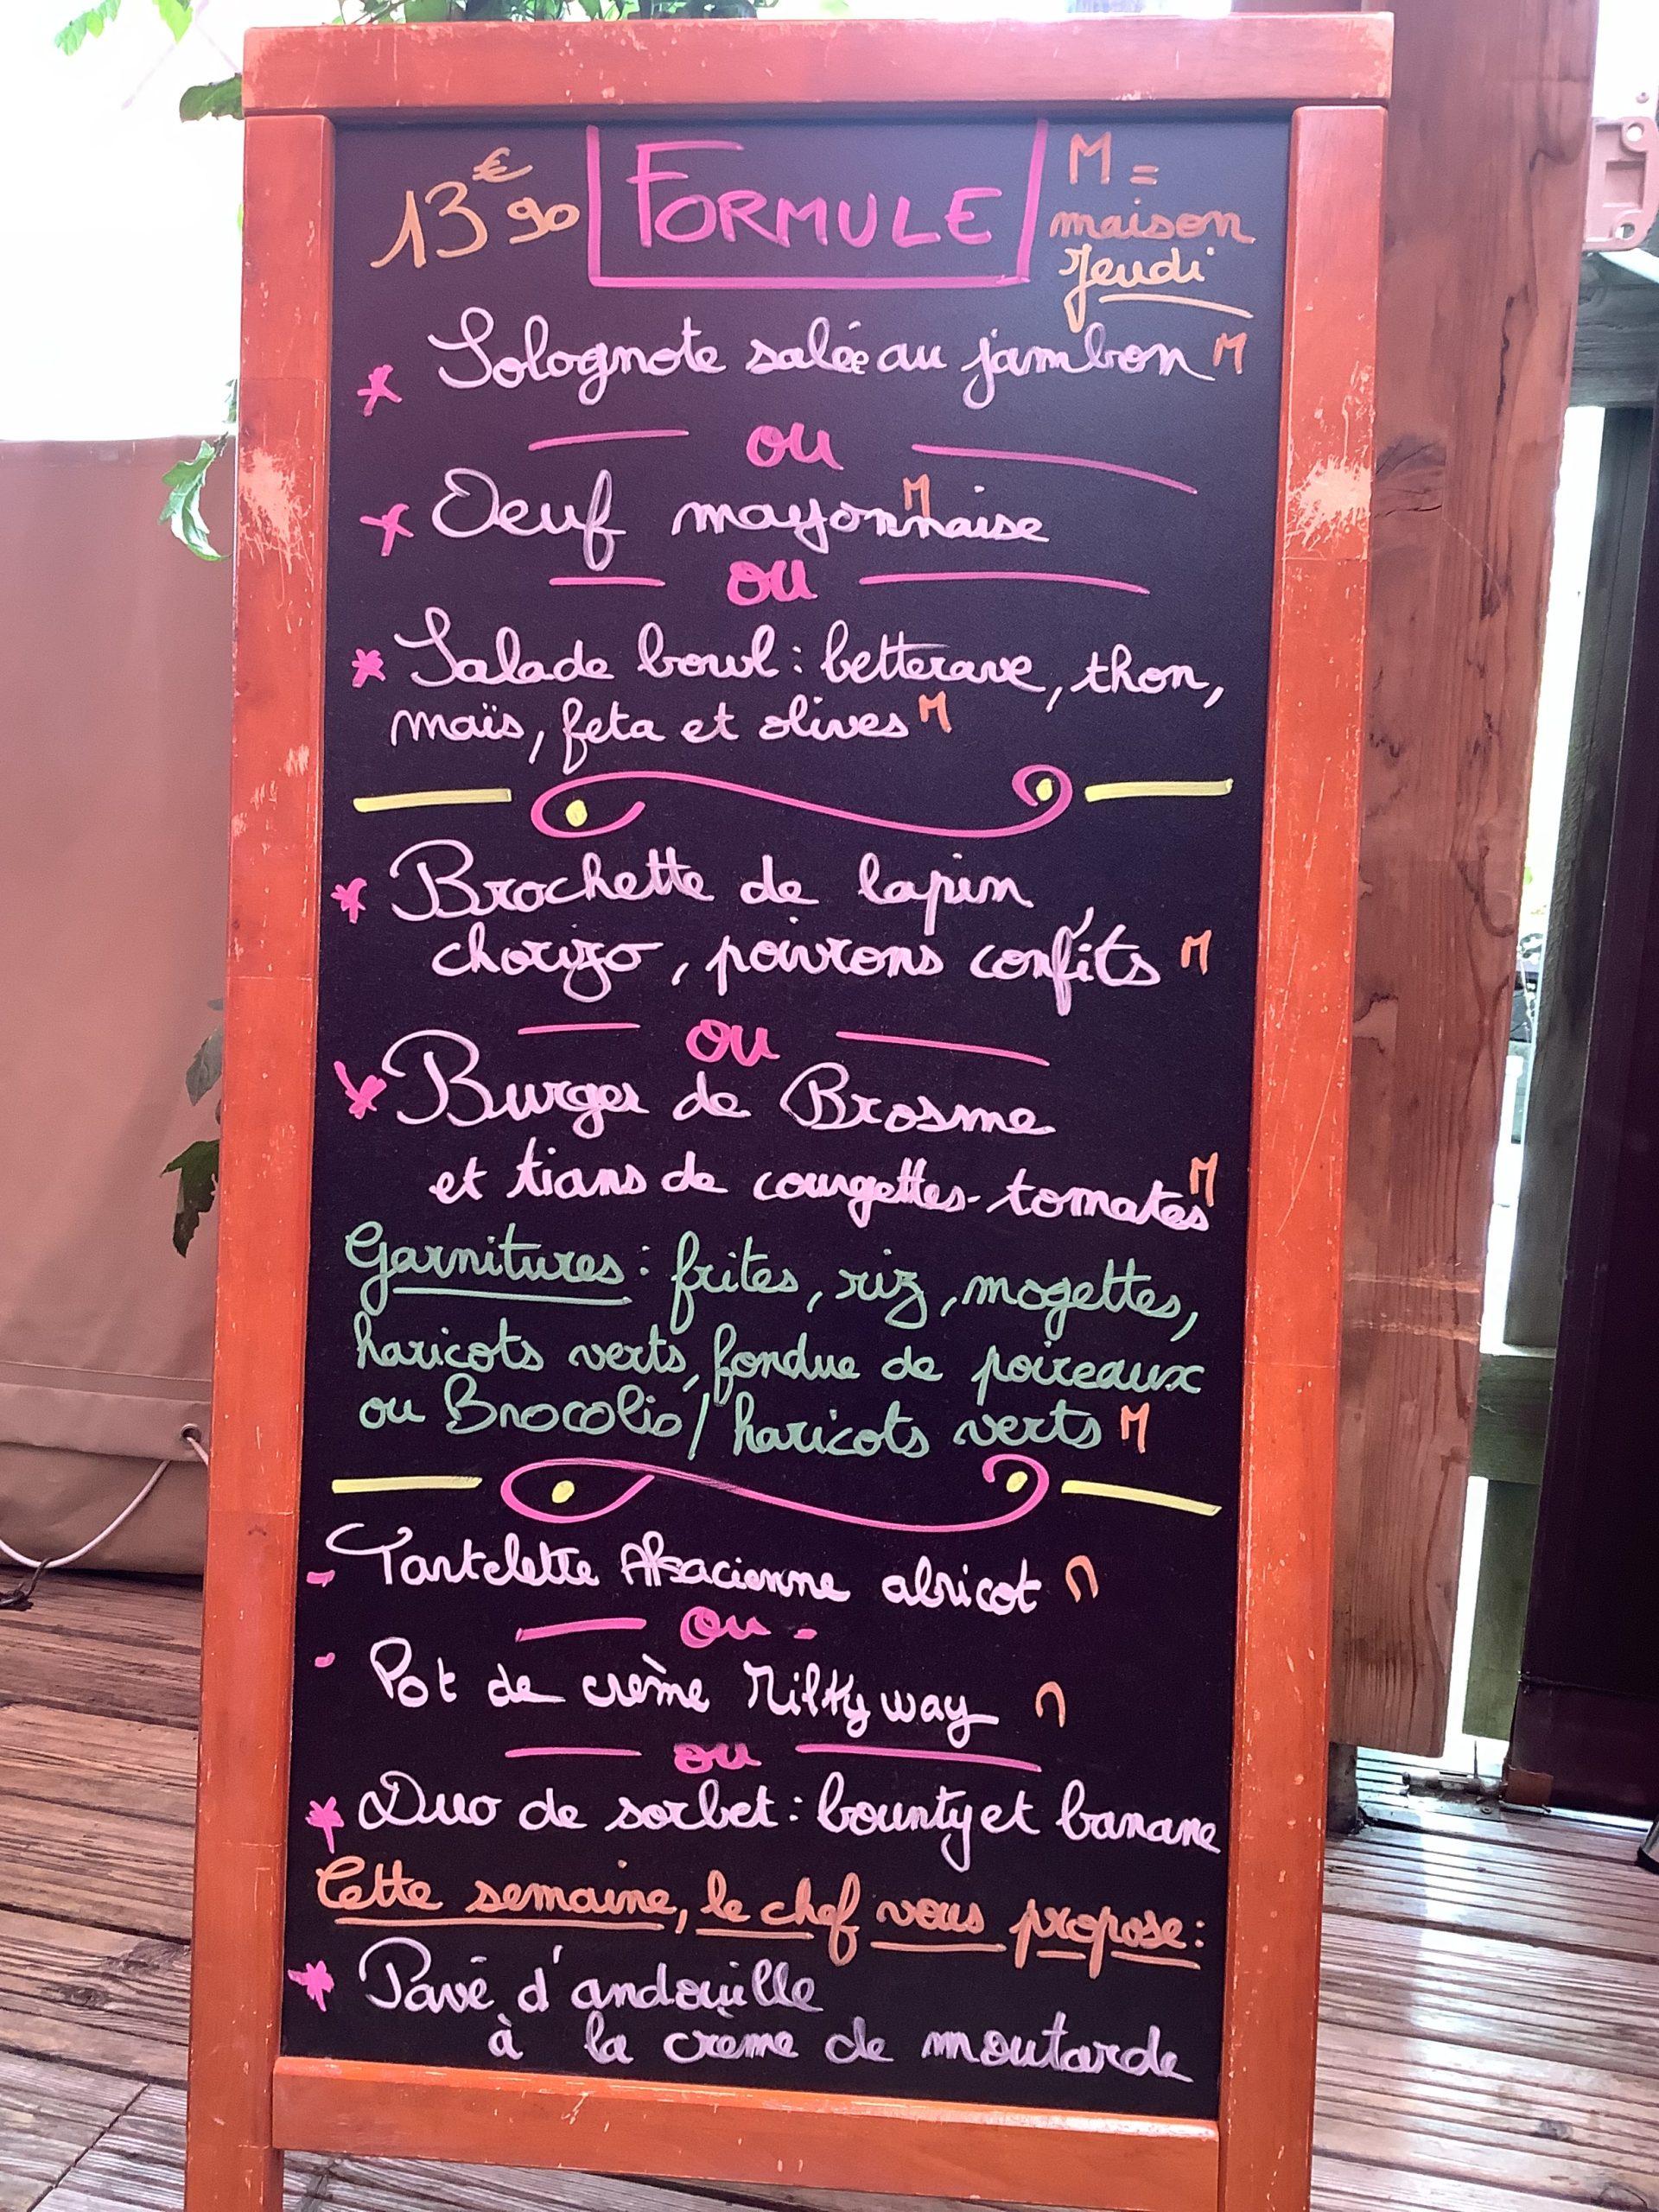 13€90 FORMULE M = maison
Jeudi
* Solognote salée au jambon M
ou
* Oeuf mayonnaise M
ou
* Salade bowl : betterave, thon,
maïs, feta et olives M
* Brochette de lapin
chorizo, poivrons confits M
ou
* Burger de Brosme
et tians de courgettes-tomates M
Garnitures : frites, riz, mogettes,
haricots verts, fondue de poireaux
ou Brocolis / haricots verts M
- Tartelette Alsacienne abricot M
ou -
- Pot de crème Milky way M
ou
* Duo de sorbet : bounty et banane
Cette semaine, le chef vous propose :
* Pavé d'andouille
à la crème de moutarde